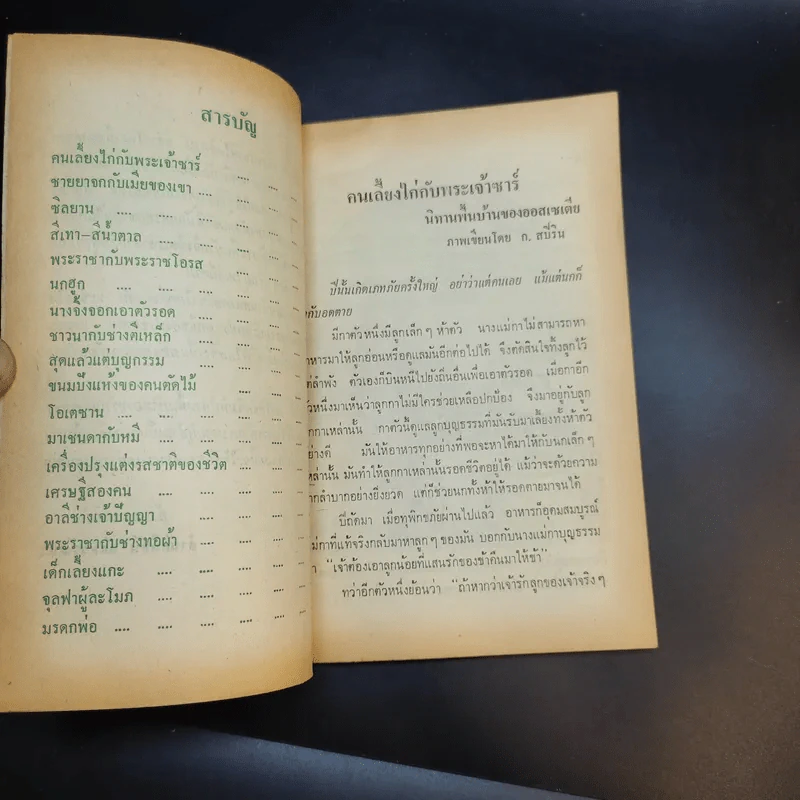 สารบัญ
คนเลี้ยงไก่กับพระเจ้าซาร์ .... ....
ชายยาจกกับเมียของเขา .... .... ....
ซิลยาน .... .... .... ....
สีเทา-สีน้ำตาล .... .... ....
พระราชากับพระราชโอรส .... ....
นกฮูก .... .... .... ....
นางจิ้งจอกเอาตัวรอด .... .... ....
ชาวนากับช่างตีเหล็ก .... .... ....
สุดแล้วแต่บุญกรรม .... .... ....
ขนมปังแห้งของคนตัดไม้ .... ....
โอเตซาน .... .... .... ....
มาเชนดากับหมี .... .... ....
เครื่องปรุงแต่งรสชาติของชีวิต .... ....
เศรษฐีสองคน .... .... .... ....
อาลีช่างเจ้าปัญญา .... .... ....
พระราชากับช่างทอผ้า .... .... ....
เด็กเลี้ยงแกะ .... .... .... ....
จุลฟาผู้ละโมภ .... .... .... ....
มรดกพ่อ .... .... .... .... ....
คนเลี้ยงไก่กับพระเจ้าซาร์
นิทานพื้นบ้านของออสเซเตีย
ภาพเขียนโดย ก. สปีริน
ปีนั้นเกิดเภทภัยครั้งใหญ่ อย่าว่าแต่คนเลย แม้แต่นกก็
กับอดตาย
มีกาตัวหนึ่งมีลูกเล็กๆ ห้าตัว นางแม่กาไม่สามารถหา
อาหารมาให้ลูกอ่อนหรือดูแลมันอีกต่อไปได้ จึงตัดสินใจทิ้งลูกไว้
ลำพัง ตัวเองก็บินหนีไปยังถิ่นอื่นเพื่อเอาตัวรอด เมื่อกาอีก
ตัวหนึ่งมาเห็นว่าลูกกาไม่มีใครช่วยเหลือปกป้อง จึงมาอยู่กับลูก
กาเหล่านั้น กาตัวนี้ดูแลลูกบุญธรรมที่มันรับมาเลี้ยงทั้งห้าตัว
อย่างดี มันให้อาหารทุกอย่างที่พอจะหาได้มาให้กับนกเล็กๆ
เหล่านั้น มันทำให้ลูกกาเหล่านั้นรอดชีวิตอยู่ได้ แม้ว่าจะด้วยความ
ลำบากอย่างยิ่งยวด แต่ก็ช่วยนกทั้งห้าให้รอดตายมาจนได้
ปีถัดมา เมื่อทุพภิกขภัยผ่านไปแล้ว อาหารก็อุดมสมบูรณ์
แม่กาที่แท้จริงกลับมาหาลูกๆ ของมัน บอกกับนางแม่กาบุญธรรม
ว่า "เจ้าต้องเอาลูกน้อยที่แสนรักของข้าคืนมาให้ข้า"
ทว่าอีกตัวหนึ่งย้อนว่า "ถ้าหากว่าเจ้ารักลูกของเจ้าจริงๆ